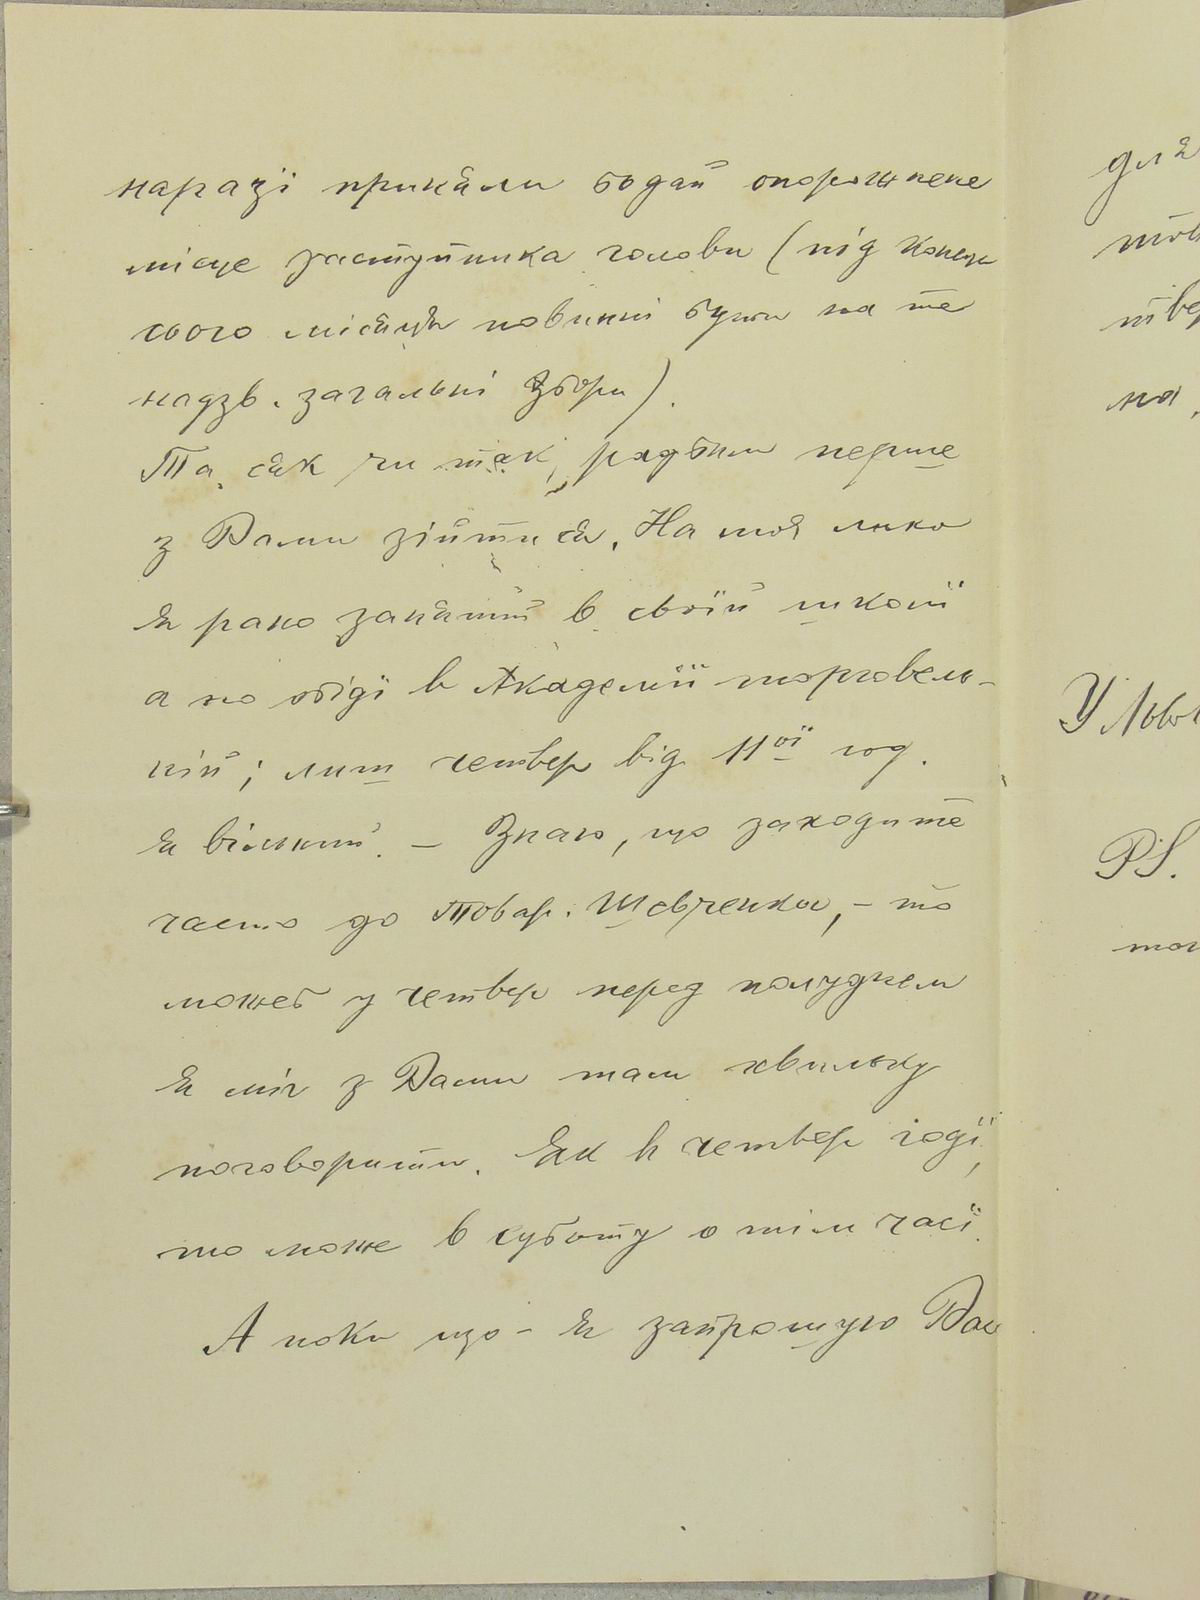 наразї приняли бодай опорожнене
місце заступника голови (під конець
сього місяця повинні бути на те
надзв. загальні Збори).
Та сяк чи так, радбим перше
з Вами зійти ся. На моє лихо
я рано занятий в своїй школї
а по обідї в Академії торговель-
ній; лиш четвер від 11ої год.
я вільний. — Знаю, що заходите
часто до Товар. Шевченка, — то
можеб у четвер перед полуднем
я міг з Вами там хвильку
поговорити. Як в четвер годї,
то може в суботу о тім часї.
А поки що – я запрошую Вас
для
У Львов
PS.